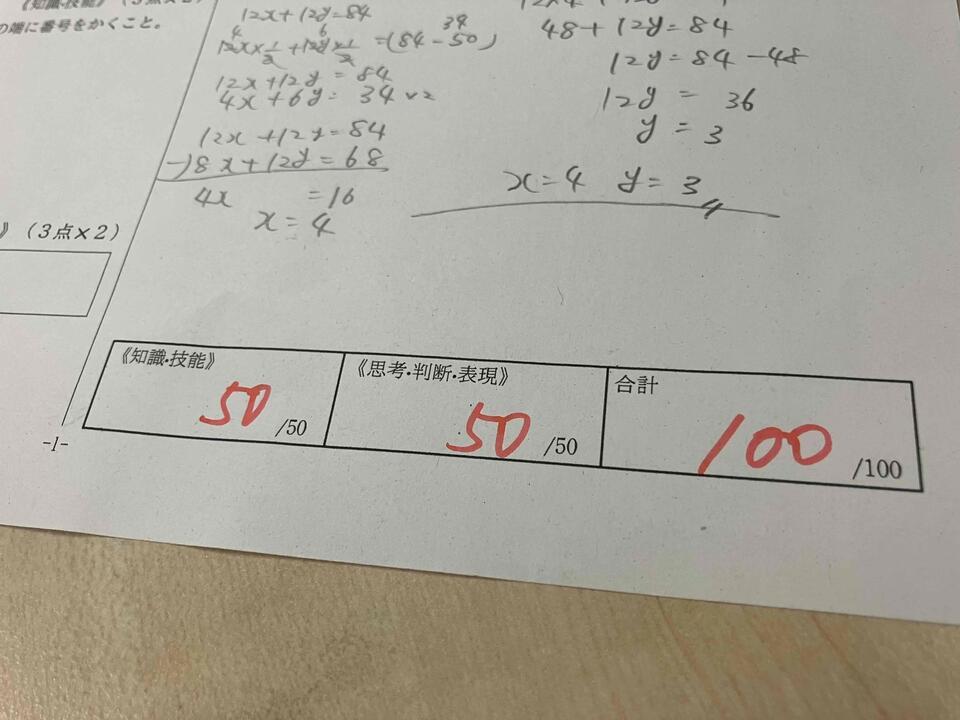 《知識・技能》(3点×2)
の端に番号をかくこと。
》(3点×2)
12x+12y=84
4 6 34
12x×1/3+12y×1/2=(84-50)
12x+12y=84
4x+6y=34 ×2
12x+12y=84
-)8x+12y=68
4x =16
x=4
48+12y=84
12y=84-48
12y=36
y=3
x=4 y=3
《知識・技能》
50 /50
《思考・判断・表現》
50 /50
合計
100 /100
-1-